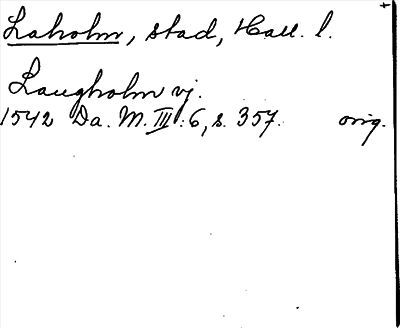 Laholm, stad, Hall. l.
Laugholm vj.
1542 Da. M. III:6, s. 357. orig.